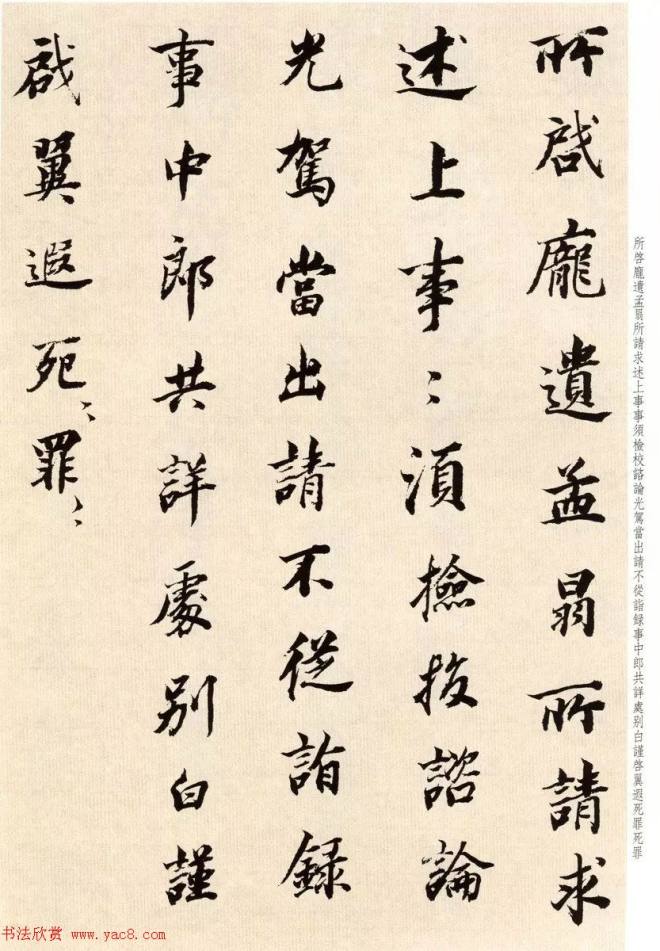 所啓龐遺孟曷所請求
述上事〻須檢校諮論
光駕當出請不從詣録
事中郎共詳處別白謹
啓翼遐死〻罪〻
所啓龐遺孟曷所請求述上事事須檢校諮論光駕當出請不從詣録事中郎共詳處别白謹啓翼遐死罪死罪
书法欣赏 www.yac8.com